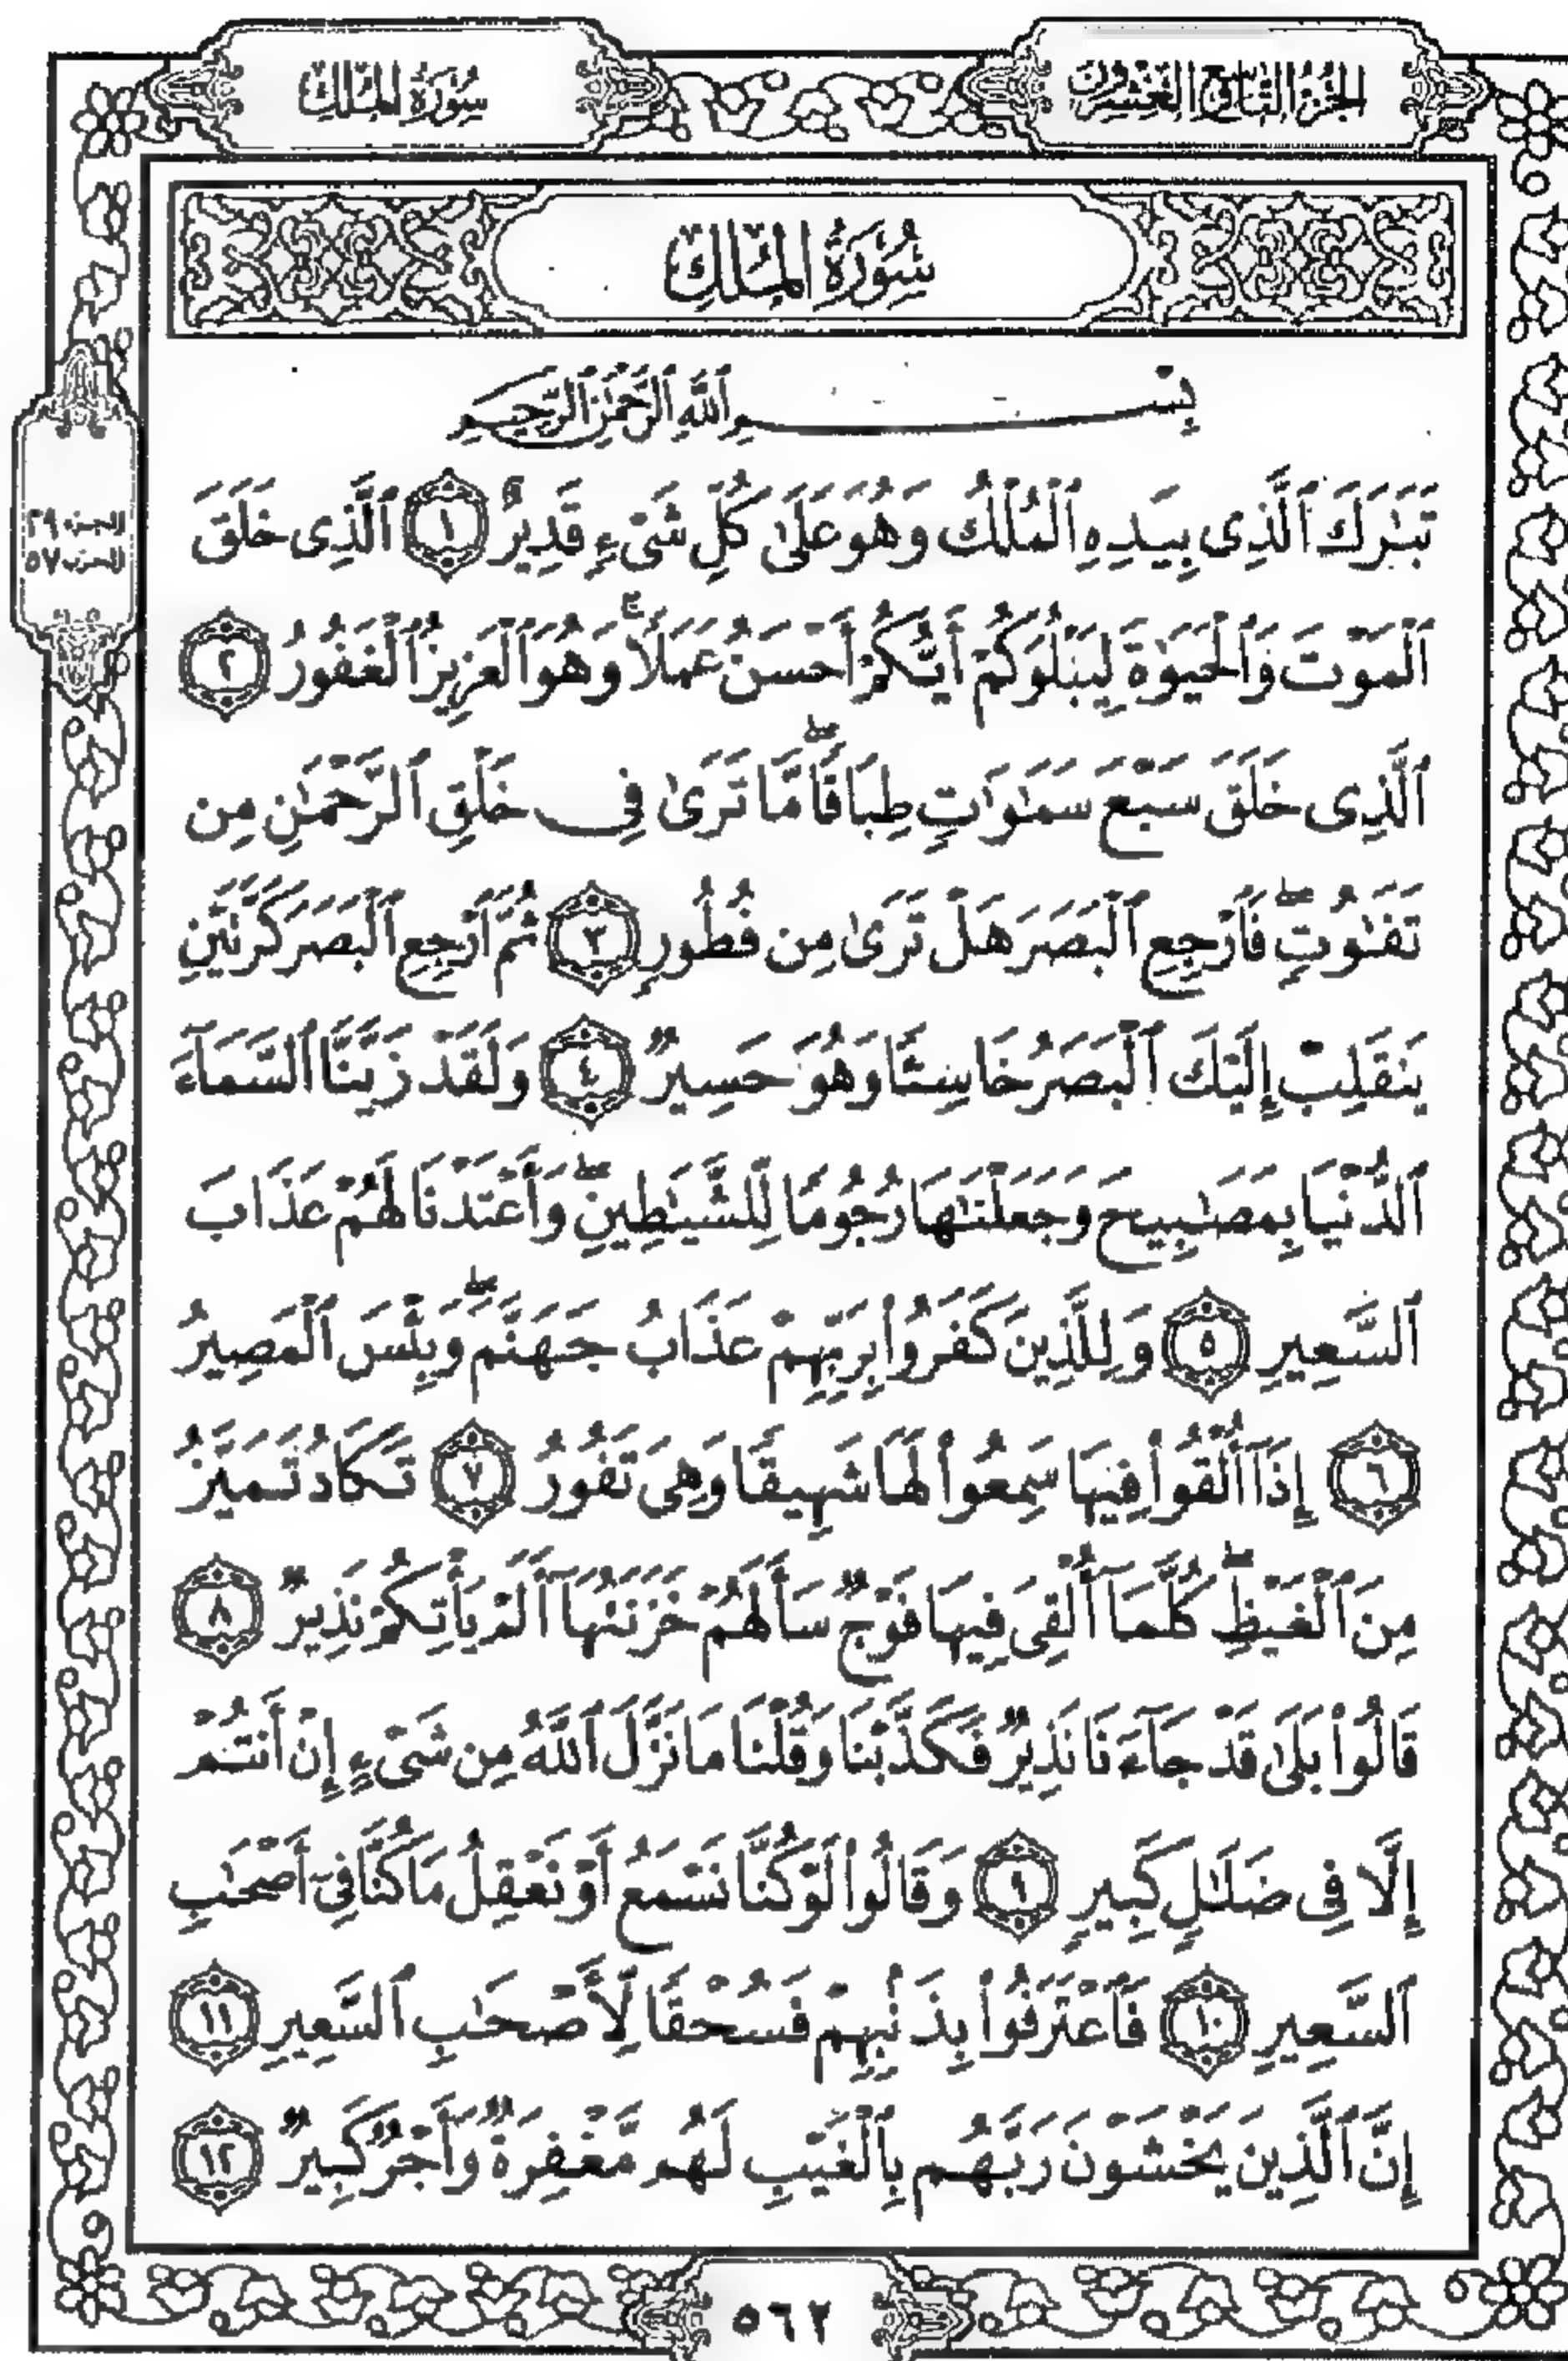 الجزء التاسع والعشرون
سورة الملك
سُورَةُ المُلْكِ
الجزء ٢٩
الحزب ٥٧
بِسْمِ ٱللَّهِ ٱلرَّحْمَٰنِ ٱلرَّحِيمِ
تَبَٰرَكَ ٱلَّذِى بِيَدِهِ ٱلْمُلْكُ وَهُوَ عَلَىٰ كُلِّ شَىْءٍ قَدِيرٌ ١ ٱلَّذِى خَلَقَ
ٱلْمَوْتَ وَٱلْحَيَوٰةَ لِيَبْلُوَكُمْ أَيُّكُمْ أَحْسَنُ عَمَلًا ۚ وَهُوَ ٱلْعَزِيزُ ٱلْغَفُورُ ٢
ٱلَّذِى خَلَقَ سَبْعَ سَمَٰوَٰتٍ طِبَاقًا ۖ مَّا تَرَىٰ فِى خَلْقِ ٱلرَّحْمَٰنِ مِن
تَفَٰوُتٍ ۖ فَٱرْجِعِ ٱلْبَصَرَ هَلْ تَرَىٰ مِن فُطُورٍ ٣ ثُمَّ ٱرْجِعِ ٱلْبَصَرَ كَرَّتَيْنِ
يَنقَلِبْ إِلَيْكَ ٱلْبَصَرُ خَاسِئًا وَهُوَ حَسِيرٌ ٤ وَلَقَدْ زَيَّنَّا ٱلسَّمَآءَ
ٱلدُّنْيَا بِمَصَٰبِيحَ وَجَعَلْنَٰهَا رُجُومًا لِّلشَّيَٰطِينِ ۖ وَأَعْتَدْنَا لَهُمْ عَذَابَ
ٱلسَّعِيرِ ٥ وَلِلَّذِينَ كَفَرُوا۟ بِرَبِّهِمْ عَذَابُ جَهَنَّمَ ۖ وَبِئْسَ ٱلْمَصِيرُ
٦ إِذَآ أُلْقُوا۟ فِيهَا سَمِعُوا۟ لَهَا شَهِيقًا وَهِىَ تَفُورُ ٧ تَكَادُ تَمَيَّزُ
مِنَ ٱلْغَيْظِ ۖ كُلَّمَآ أُلْقِىَ فِيهَا فَوْجٌ سَأَلَهُمْ خَزَنَتُهَآ أَلَمْ يَأْتِكُمْ نَذِيرٌ ٨
قَالُوا۟ بَلَىٰ قَدْ جَآءَنَا نَذِيرٌ فَكَذَّبْنَا وَقُلْنَا مَا نَزَّلَ ٱللَّهُ مِن شَىْءٍ إِنْ أَنتُمْ
إِلَّا فِى ضَلَٰلٍ كَبِيرٍ ٩ وَقَالُوا۟ لَوْ كُنَّا نَسْمَعُ أَوْ نَعْقِلُ مَا كُنَّا فِىٓ أَصْحَٰبِ
ٱلسَّعِيرِ ١٠ فَٱعْتَرَفُوا۟ بِذَنۢبِهِمْ فَسُحْقًا لِّأَصْحَٰبِ ٱلسَّعِيرِ ١١
إِنَّ ٱلَّذِينَ يَخْشَوْنَ رَبَّهُم بِٱلْغَيْبِ لَهُم مَّغْفِرَةٌ وَأَجْرٌ كَبِيرٌ ١٢
٥٦٢